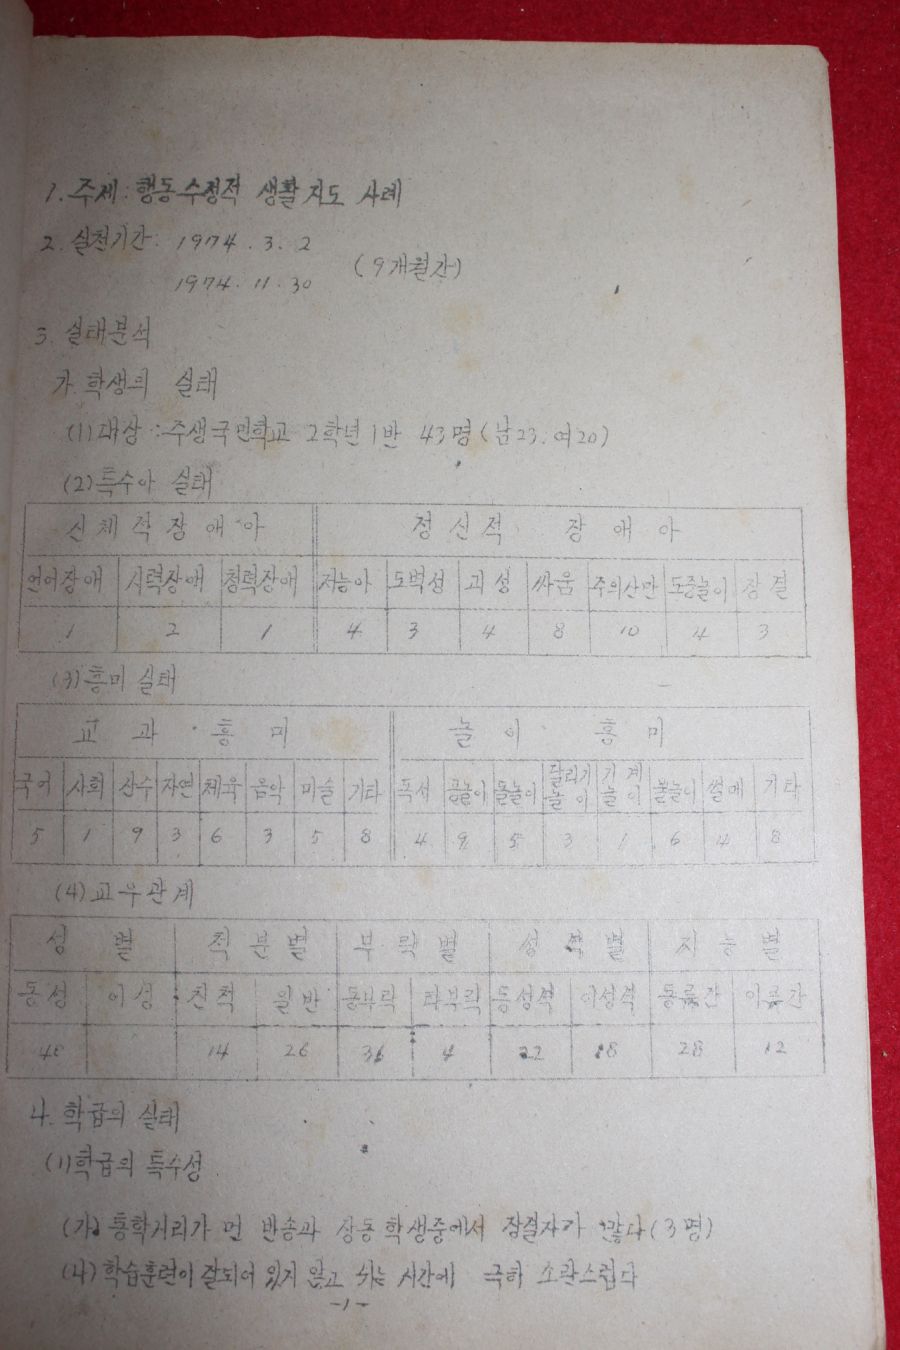 1. 주제: 행동수정적 생활지도 사례
2. 실천기간: 1974. 3. 2
(9개월간)
1974. 11. 30
3. 실태분석
가. 학생의 실태
(1) 대상: 주생국민학교 2학년 1반 43명(남23. 여20)
(2) 특수아 실태
신체적장애아 정신적 장애아
언어장애 시력장애 청력장애 저능아 도벽성 괴성 싸움 주의산만 도중놀이 장결
1 2 1 4 3 4 8 10 4 3
(3) 흥미 실태
교과·흥미 놀이·흥미
국어 사회 산수 자연 체육 음악 미술 기타 독서 공놀이 돌놀이 달리기놀이 기계놀이 불놀이 썰매 기타
5 1 9 3 6 3 5 8 4 9 5 3 1 6 4 8
(4) 교우관계
성별 척분별 부락별 성격별 지능별
동성 이성 친척 일반 동부락 타부락 동성격 이성격 동류간 이류간
40 14 26 36 4 22 18 28 12
나. 학급의 실태
(1) 학급의 특수성
(가) 통학거리가 먼 반송과 상동 학생중에서 장결자가 많다(3명)
(나) 학습훈련이 잘되어 있지 않고 쉬는 시간에 극히 소란스럽다
-1-